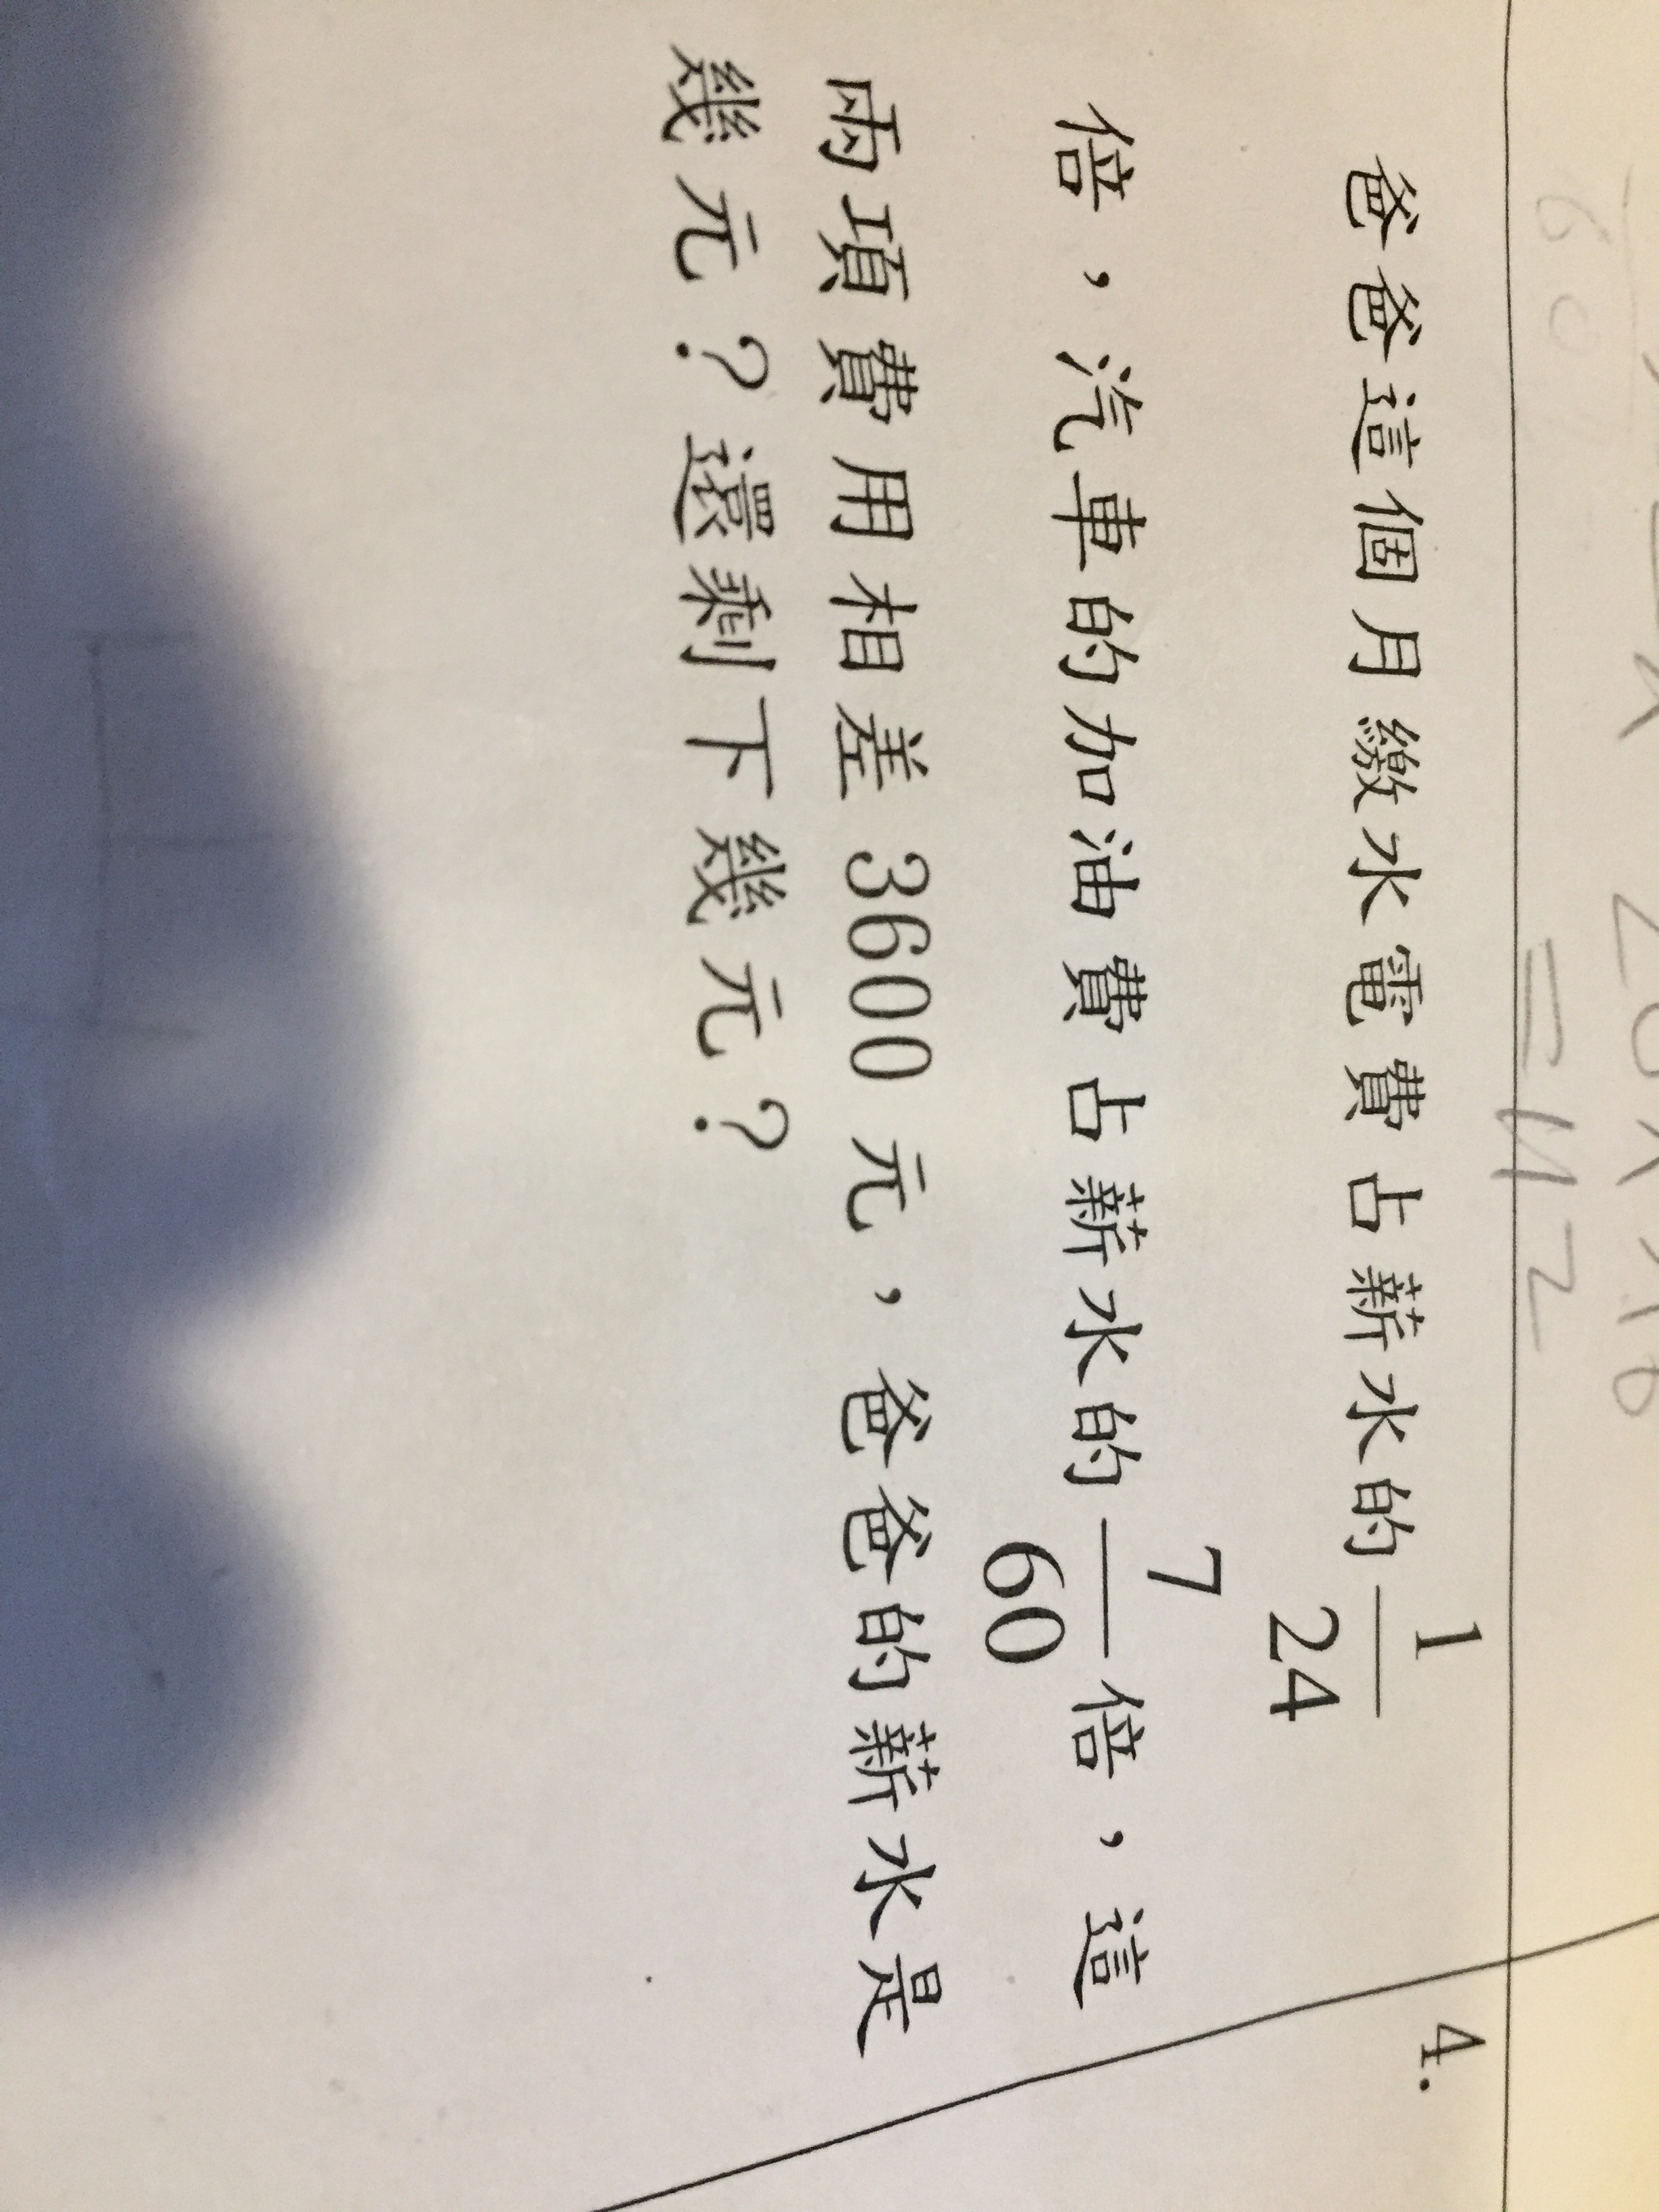 爸爸這個月繳水電費占薪水的 1/24
倍，汽車的加油費占薪水的 7/60 倍，這
兩項費用相差 3600 元，爸爸的薪水是
幾元？還剩下幾元？
4.